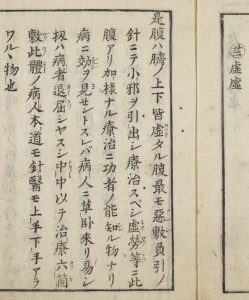 虚虚
是腹ハ臍ノ上下皆虚タル腹最モ惡敷負引ノ
針ニテ小邪ヲ引出シ療治スベシ虚勞等ニ此
腹アリ加様ナル療治ニ功者ノ能知ル物ナリ
病ニ効ヲ見セントスレバ病人ニ草臥來リ易シ
扨ハ病者退屈シヤスシ中中以テ治療六箇
敷此體ノ病人本道モ針醫モ上手下手アラ
ワルヽ物也